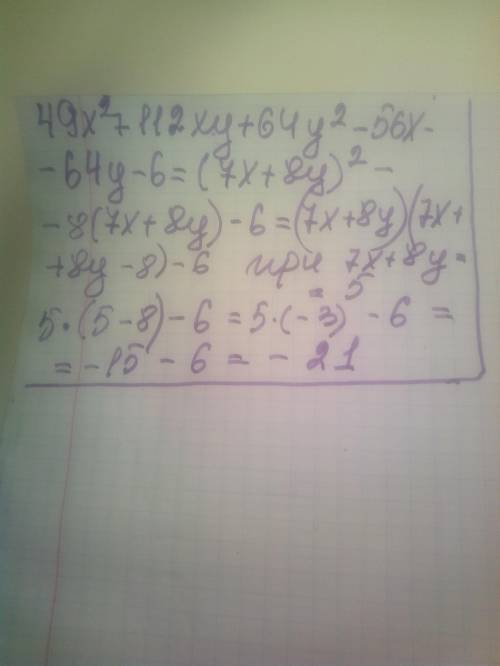 49x²+112xy+64y²-56x-
-64y-6=(7x+8y)²-
-8(7x+8y)-6=(7x+8y)(7x+
+8y-8)-6 при 7x+8y=
=5
5·(5-8)-6=5·(-3)-6=
=-15-6=-21